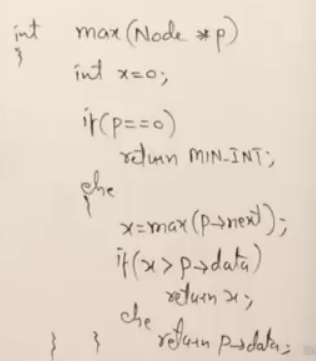 int max(Node *p)
{
int x=0;
if(p==0)
return MIN_INT;
else
{
x=max(p→next);
if(x>p→data)
return x;
else
return p→data;
} }